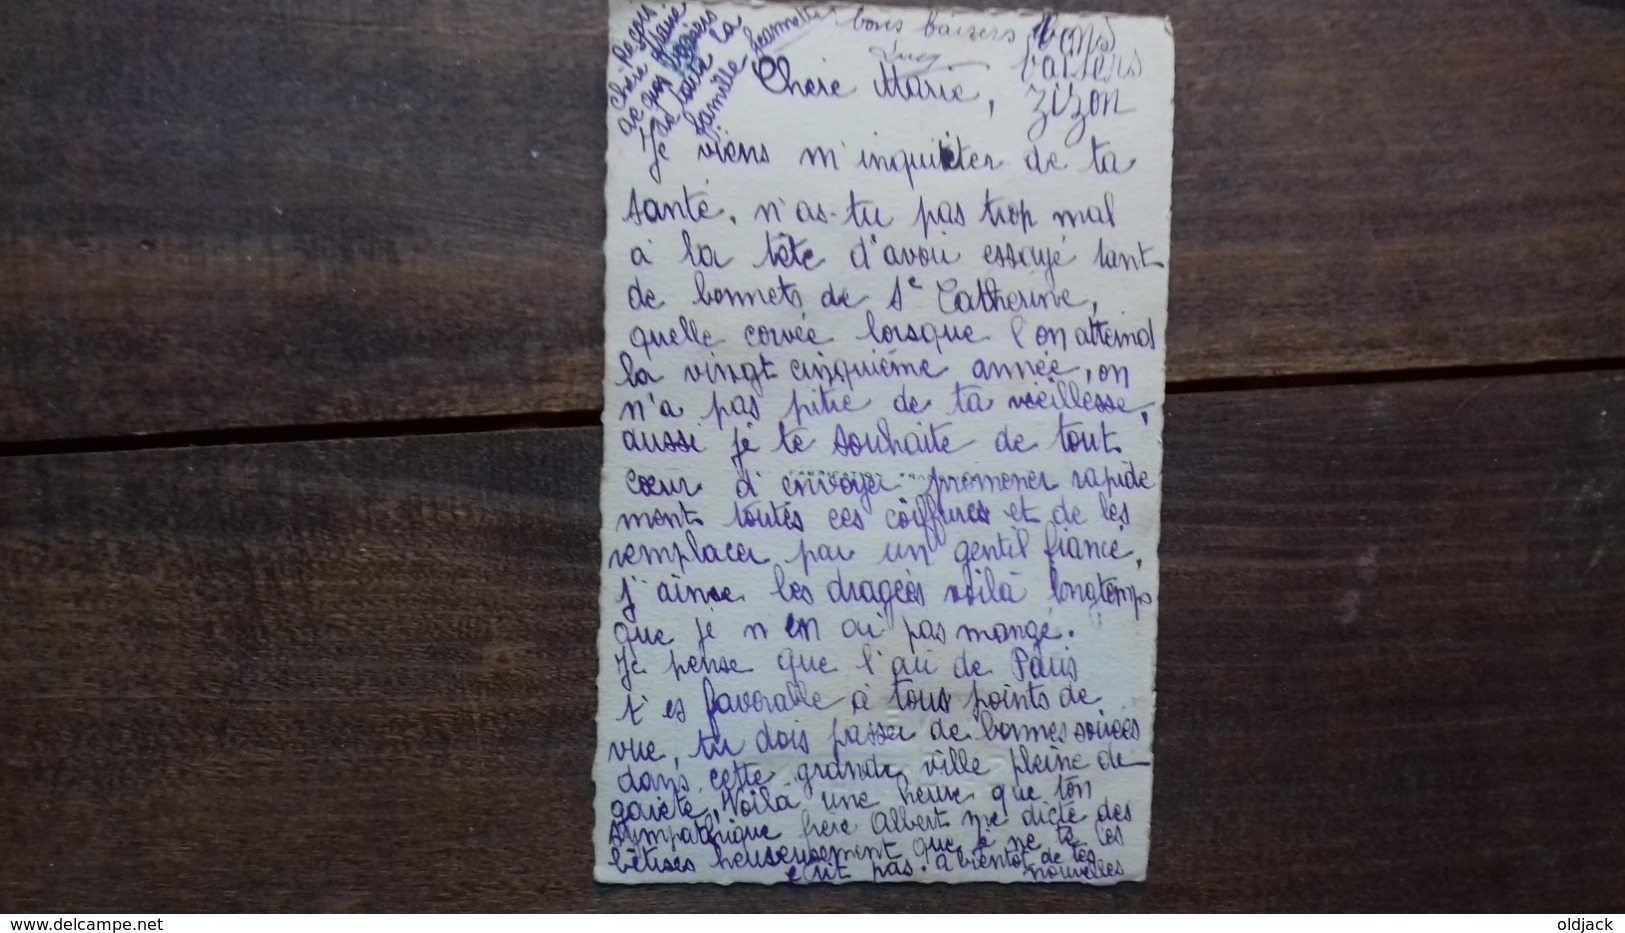 Reçois
chère Marie
de gros baisers
de toute la
famille Jeannette
bons baisers
Lucy
bons
baisers
Zizon
Chère Marie,
Je viens m'inquiéter de ta
santé, n'as-tu pas trop mal
à la tête d'avoir essayé tant
de bonnets de Ste Catherine,
quelle corvée lorsque l'on atteind
la vingt cinquième année, on
n'a pas pitié de ta vieillesse,
aussi je te souhaite de tout
cœur d'envoyer promener rapide
ment toutes ces coiffures et de les
remplacer par un gentil fiancé,
j'aime les dragées voilà longtemps
que je n'en ai pas mangé.
Je pense que l'air de Paris
t'es favorable à tous points de
vue, tu dois passer de bonnes soirées
dans cette grande ville pleine de
gaieté, Voilà une heure que ton
sympathique frère Albert me dicte des
bêtises heureusement que je ne te les
écrit pas. à bientôt de tes
nouvelles
delcampe.net
oldjack